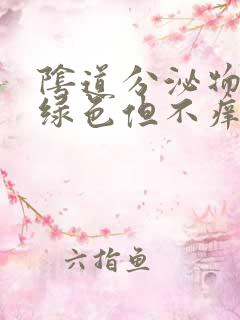 阴道分泌物
绿色但不痒
六指鱼